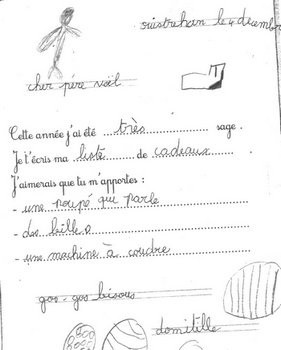 ouistreham le 4 décembre
cher père noël
Cette année j'ai été très sage.
Je t'écris ma liste de cadeaux
J'aimerais que tu m'apportes :
- une poupé que parle
- des billes
- une machine à coudre
gos-gos bisous
domitille